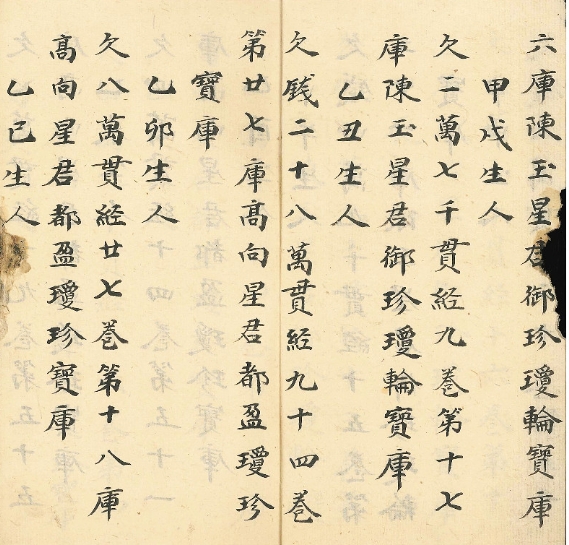 六庫陳玉星君御珍瓊輪寶庫
甲戌生人
欠一萬七千貫経九巻第十七
庫陳玉星君御珍瓊輪寶庫
乙丑生人
欠銭二十八萬貫経九十四巻
第廿七庫髙向星君都盈瓊珍
寶庫
乙卯生人
欠八萬貫経廿七巻第十八庫
髙向星君都盈瓊珍寶庫
乙巳生人